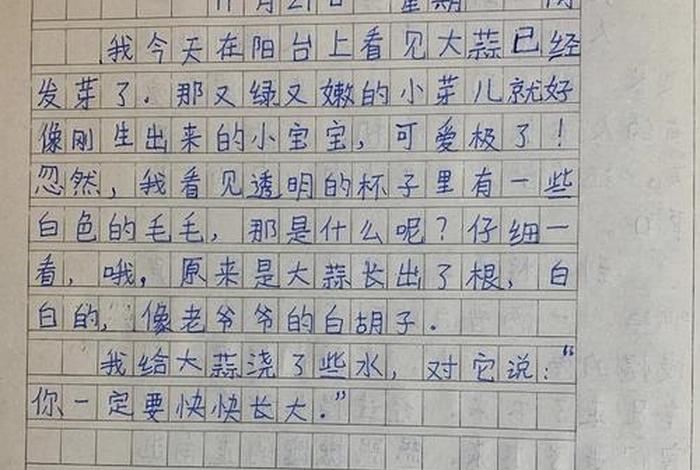 11月21日 星期
我今天在阳台上看见大蒜已经
发芽了.那又绿又嫩的小芽儿就好
像刚生出来的小宝宝,可爱极了!
忽然,我看见透明的杯子里有一些
白色的毛毛,那是什么呢?仔细一
看,哦,原来是大蒜长出了根,白
白的,像老爷爷的白胡子.
我给大蒜浇了些水,对它说:“
你一定要快快长大.”